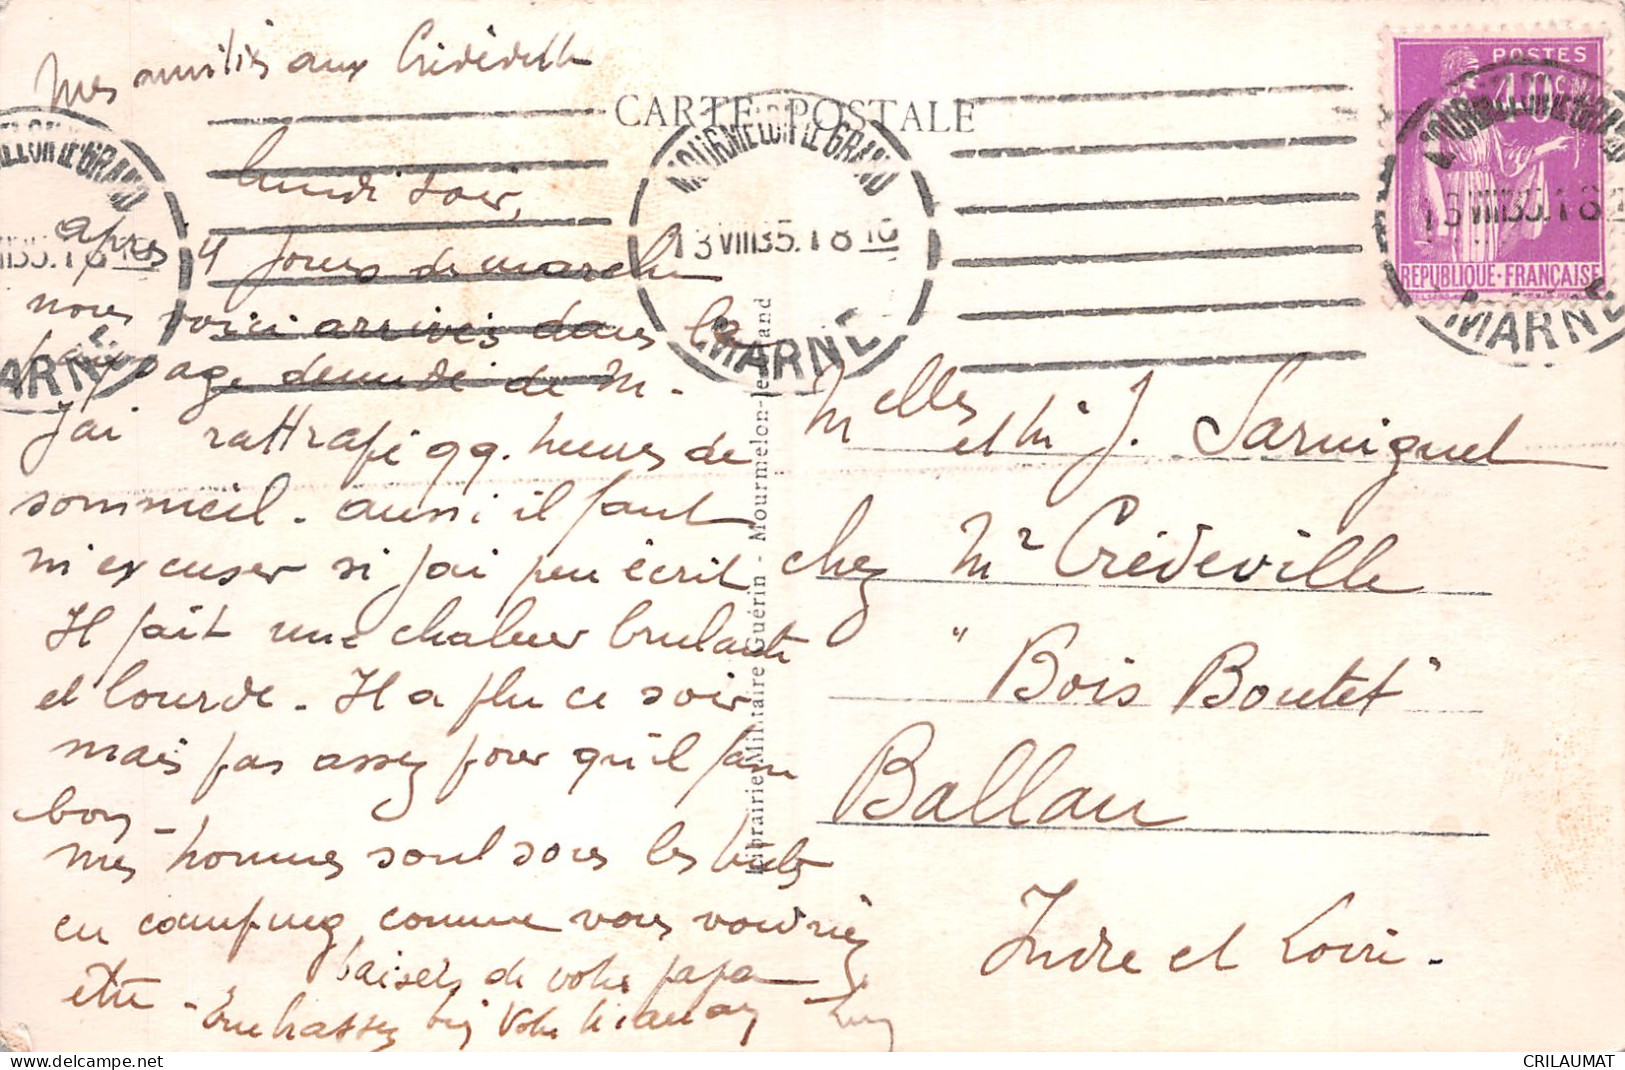 Mes amitiés aux Crédeville
CARTE POSTALE
lundi soir,
après 4 jours de marche
nous voici arrivés dans le
paysage dénudé de M.
J'ai rattrapé qq. heures de
sommeil. aussi il faut
m'excuser si j'ai peu écrit
Il fait une chaleur brulante
et lourde. Il a plu ce soir
mais pas assez pour qu'il fasse
bon -
mes hommes sont sous les
en camping comme vous voudriez
être -
baisers de votre papa
Embrassez bien votre maman
Melles et Mr J. Sarniguet
chez Mr Crédeville
"Bois Boutet"
Ballan
Indre et Loire.
Librairie Militaire Guérin - Mourmelon-le-Grand
POSTES
40c
REPUBLIQUE·FRANÇAISE
MOURMELON LE GRAND
13 VIII 35. 18 10
MARNE
MOURMELON LE GRAND
13 VIII 35. 18
MARNE
CRILAUMAT